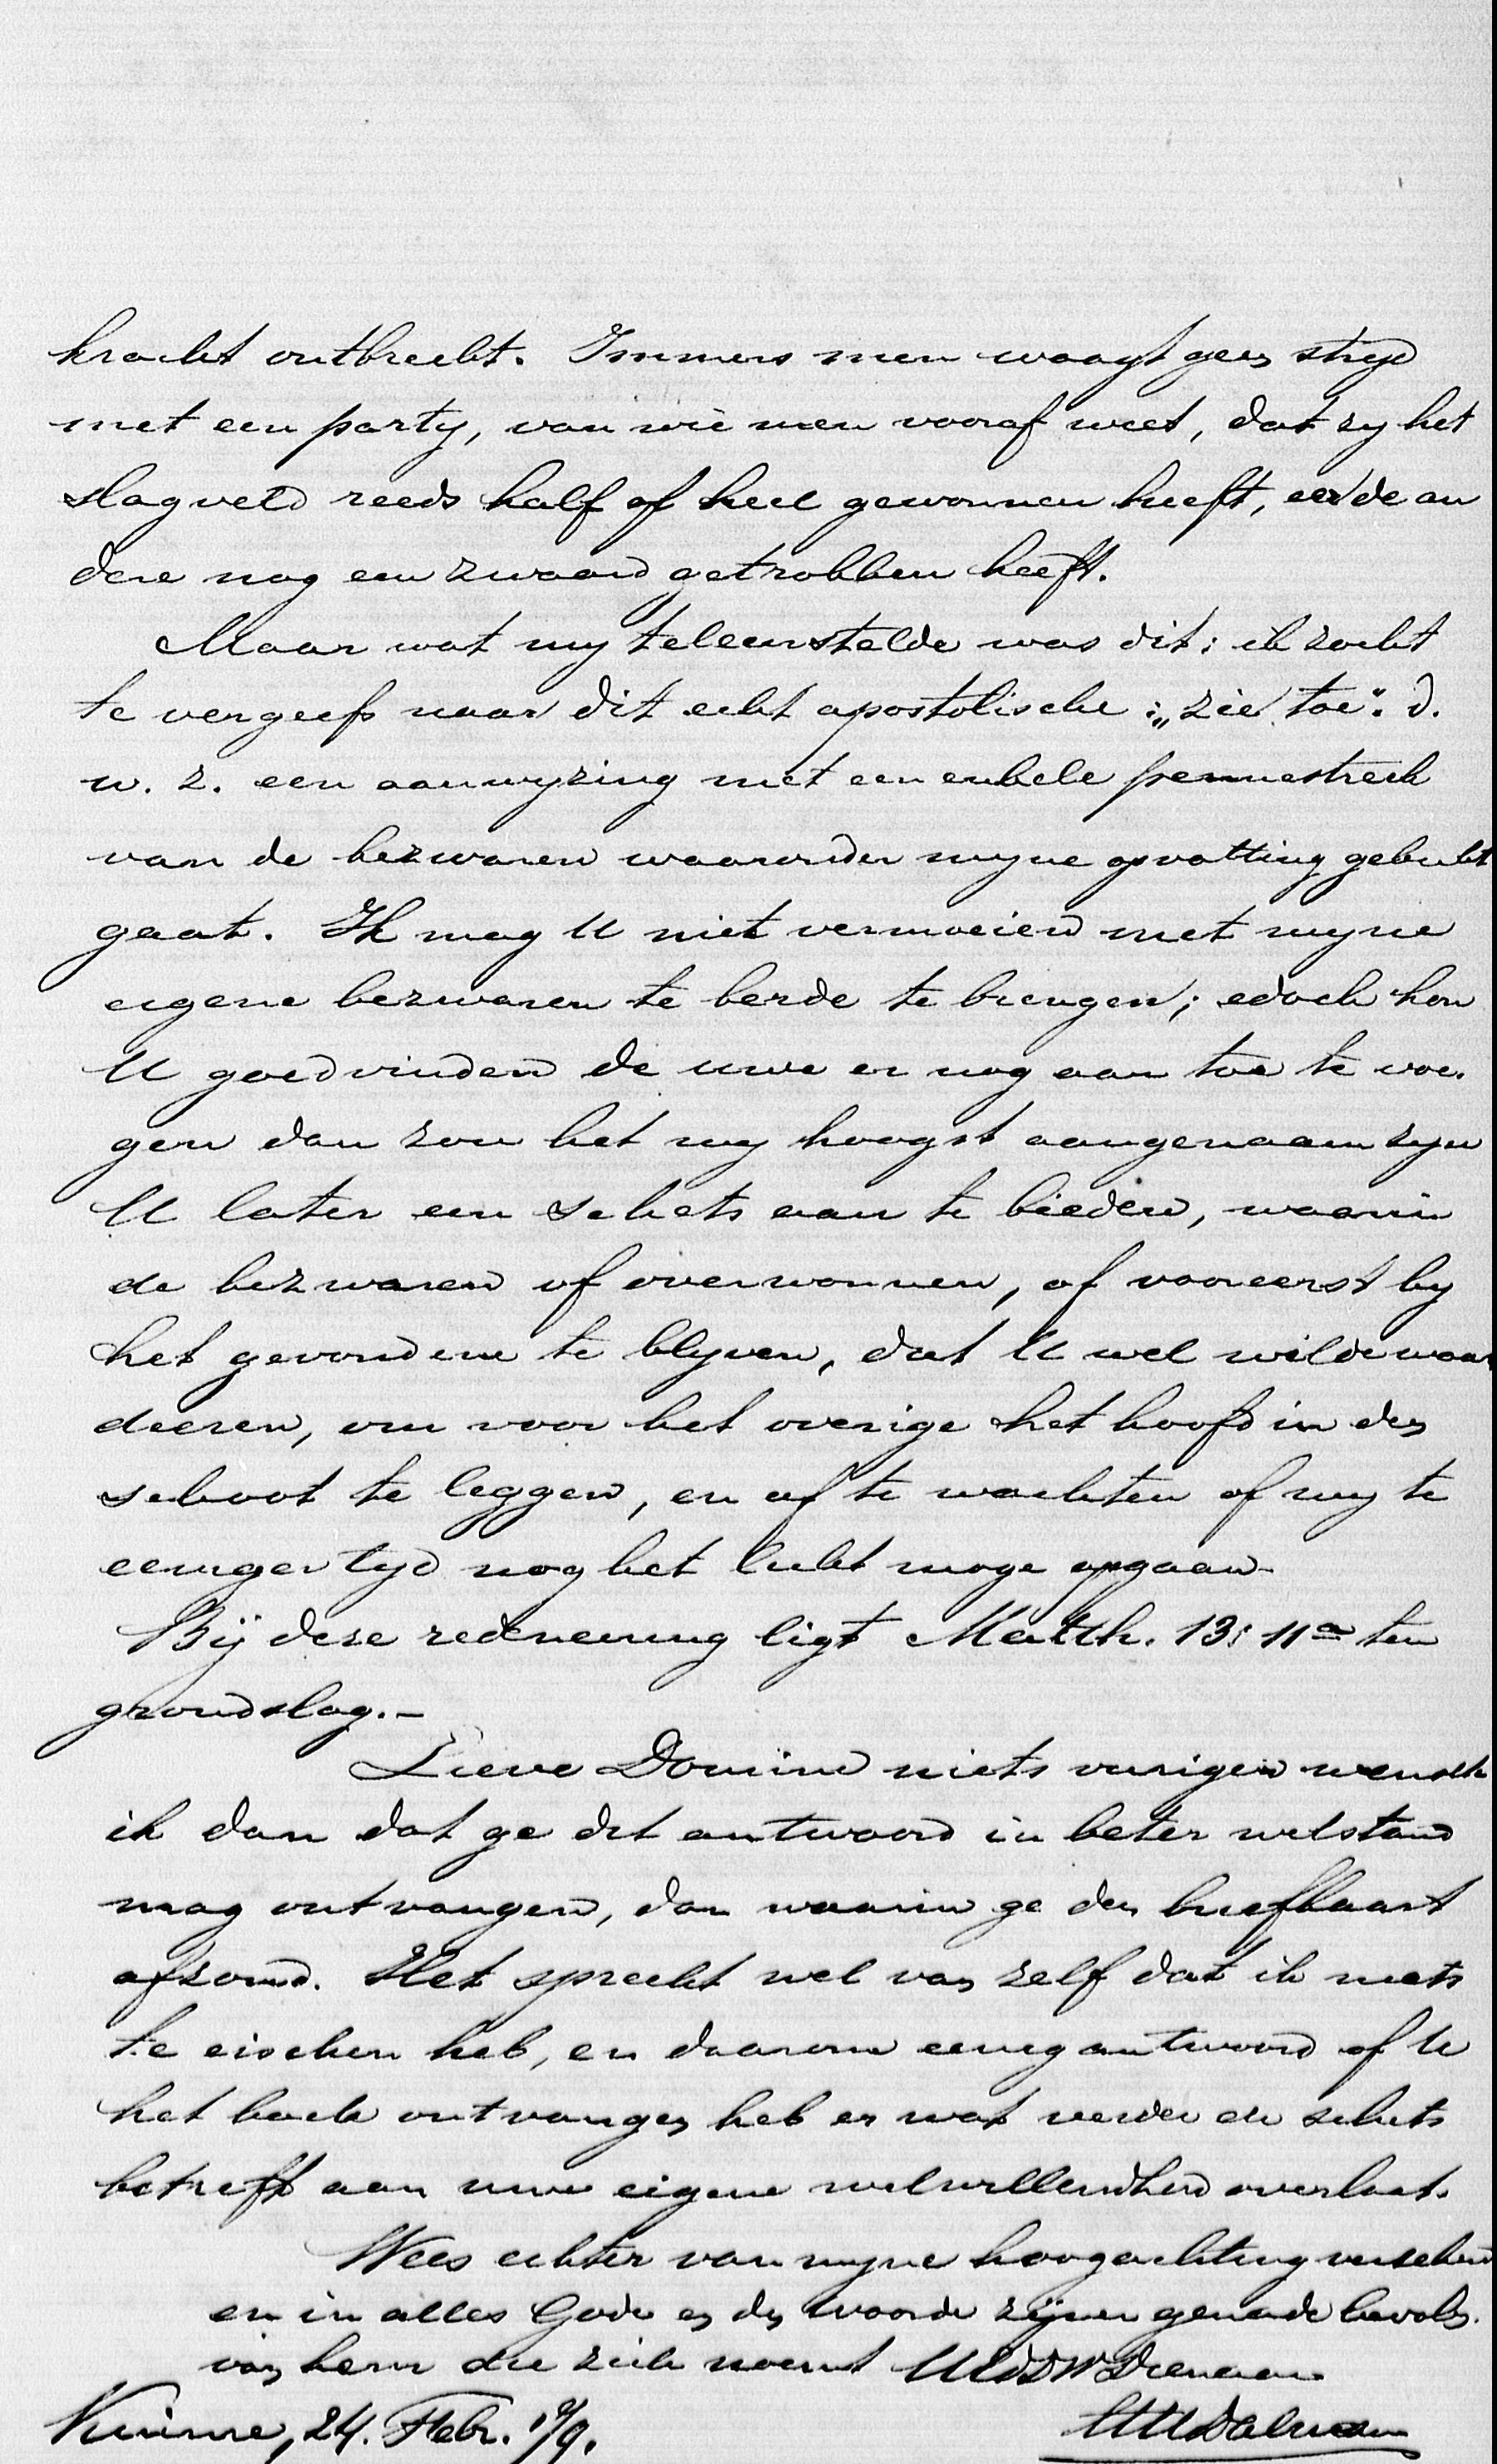 kracht ontbreekt. Immers men waagt geen stryd
met een party, van wie men vooraf weet, dat zy het
slagveld reeds half of heel gewonnen heeft, eer de an
dere nog een zwaard getrokken heeft.
Maar wat my teleurstelde was dit: ik zocht
te vergeefs naar dit echt apostolische: „zie toe". d.
w. z. een aanwyzing met een enkele pennestreek
van de bezwaren waaronder myne opvatting gebukt
gaat. Ik mag U niet vermoeien met myne
eigene bezwaren te berde te brengen; edoch kon
U goedvinden de uwe er nog aan toe te voe-
gen dan zou het my hoogst aangenaam zyn
U later een schets aan te bieden, waarin
de bezwaren of overwonnen, of vooreerst by
het gevondene te blyven, dat U wel wilde waar
deeren, om voor het overige het hoofd in den
schoot te leggen, en af te wachten of my te
eeniger tyd nog het licht moge opgaan.
Bij deze redeneering ligt Matth. 13:11a ten
grondslag.-
Lieve Dominé niets vuriger wensch
ik dan dat ge dit antwoord in beter welstand
mag ontvangen, dan waarin ge den briefkaart
afzond. Het spreekt wel van zelf dat ik niets
te eischen heb, en daarom eenig antwoord of U
het boek ontvangen heb en wat verder de schets
betreft aan uwe eigene welwillendheid overlaat.
Wees echter van myne hoogachting verzekerd
en in alles Gode en den woorde zijner genade bevolen.
van hem die zich noemt Dienaar
24. Febr.